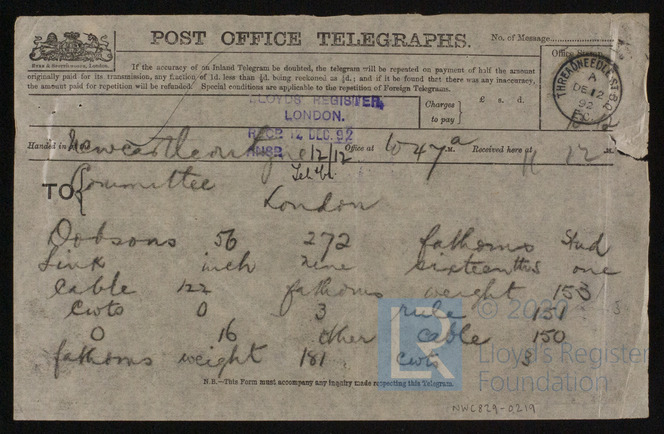 POST OFFICE TELEGRAPHS.
No. of Message
If the accuracy of an Inland Telegram be doubted, the telegram will be repeated on payment of half the amount
originally paid for its transmission, any fraction of 1d. less than ½d. being reckoned as ½d.; and if it be found that there was any inaccuracy,
the amount paid for repetition will be refunded. Special conditions are applicable to the repetition of Foreign Telegrams.
Office Stamp.
THREADNEEDLE ST. B.O.
A
DE 12
92
E.C.
LLOYD'S REGISTER,
LONDON.
RECD 12 DEC. 92
Charges
to pay
£ s. d.
Handed in at
Newcastle on Tyne
12/12
Office at
10 47 a M.
Received here at
11 12 M.
TO
Committee
London
Dobsons 56 272 fathoms Stud
Link inch nine sixteenths one
cable 122 fathoms weight 153
cwts 0 3 rule 151
0 16 other cable 150
fathoms weight 181 cwts 3
N.B.—This Form must accompany any inquiry made respecting this Telegram.
LR
Lloyd's Register
Foundation
NWC829-0219